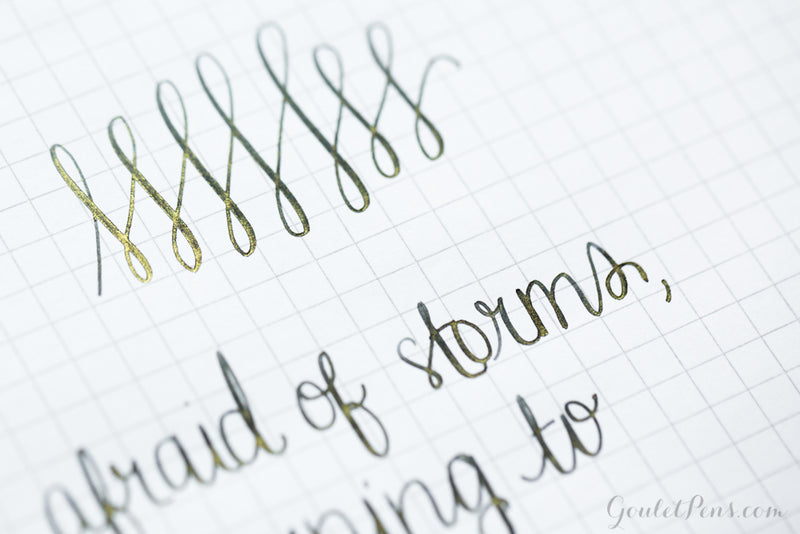 afraid of storms,
to
GouletPens.com